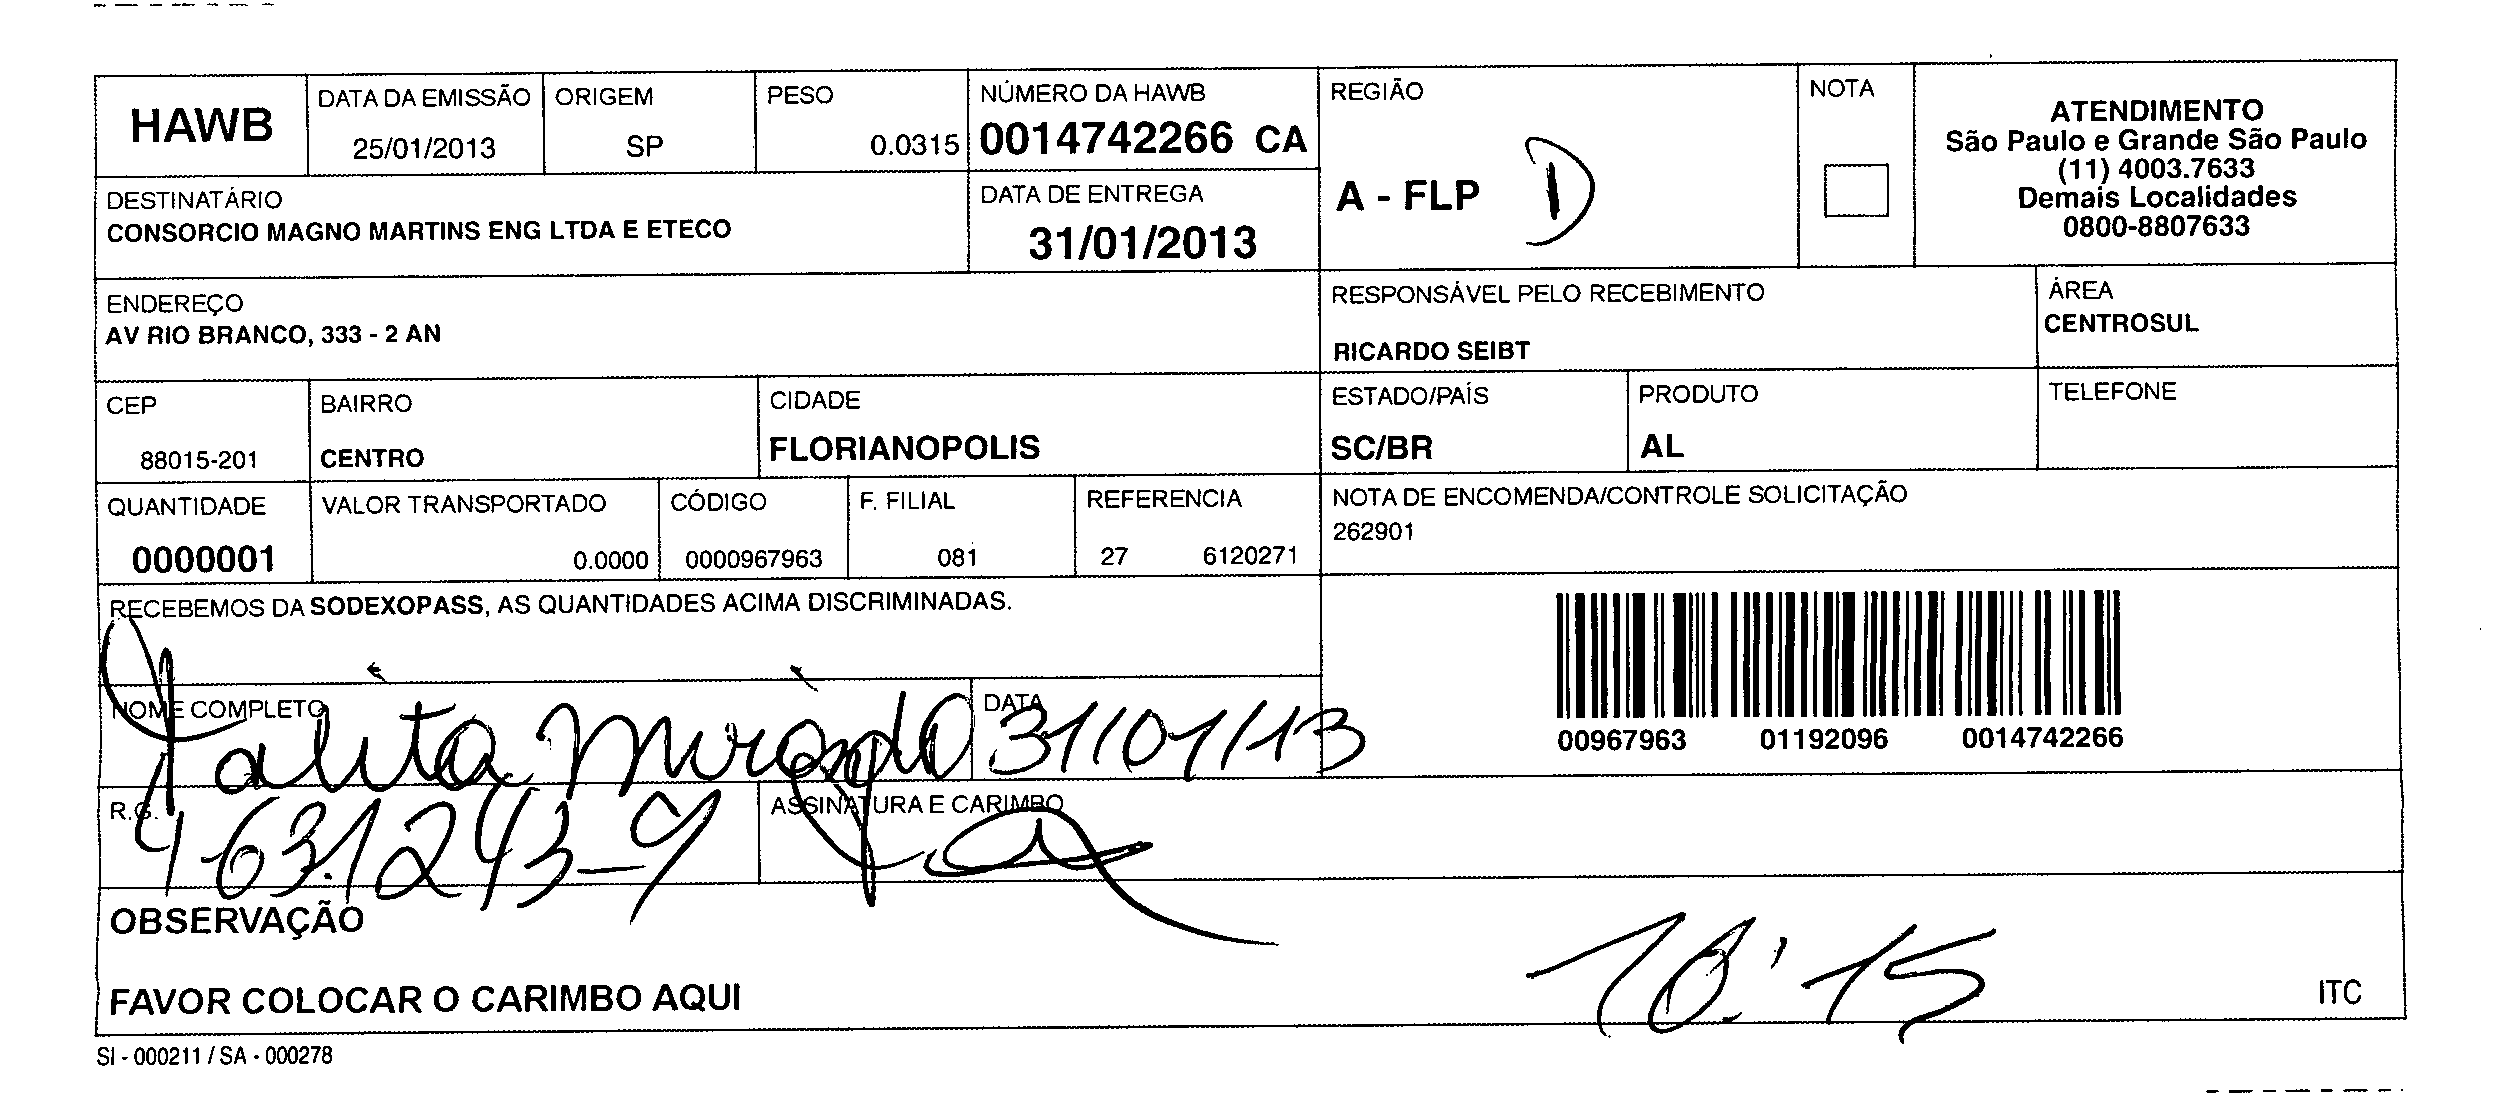 HAWB
DATA DA EMISSÃO
25/01/2013
ORIGEM
SP
PESO
0.0315
NÚMERO DA HAWB
0014742266 CA
REGIÃO
A - FLP D
NOTA
ATENDIMENTO
São Paulo e Grande São Paulo
(11) 4003.7633
Demais Localidades
0800-8807633
DESTINATÁRIO
CONSORCIO MAGNO MARTINS ENG LTDA E ETECO
DATA DE ENTREGA
31/01/2013
ENDEREÇO
AV RIO BRANCO, 333 - 2 AN
RESPONSÁVEL PELO RECEBIMENTO
RICARDO SEIBT
ÁREA
CENTROSUL
CEP
88015-201
BAIRRO
CENTRO
CIDADE
FLORIANOPOLIS
ESTADO/PAÍS
SC/BR
PRODUTO
AL
TELEFONE
QUANTIDADE
0000001
VALOR TRANSPORTADO
0.0000
CÓDIGO
0000967963
F. FILIAL
081
REFERENCIA
27 6120271
NOTA DE ENCOMENDA/CONTROLE SOLICITAÇÃO
262901
RECEBEMOS DA SODEXOPASS, AS QUANTIDADES ACIMA DISCRIMINADAS.
NOME COMPLETO
Talita Miranda
DATA
31/01/13
00967963 01192096 0014742266
R.G.
4631243-9
ASSINATURA E CARIMBO
OBSERVAÇÃO
10:15
FAVOR COLOCAR O CARIMBO AQUI
ITC
SI - 000211 / SA - 000278